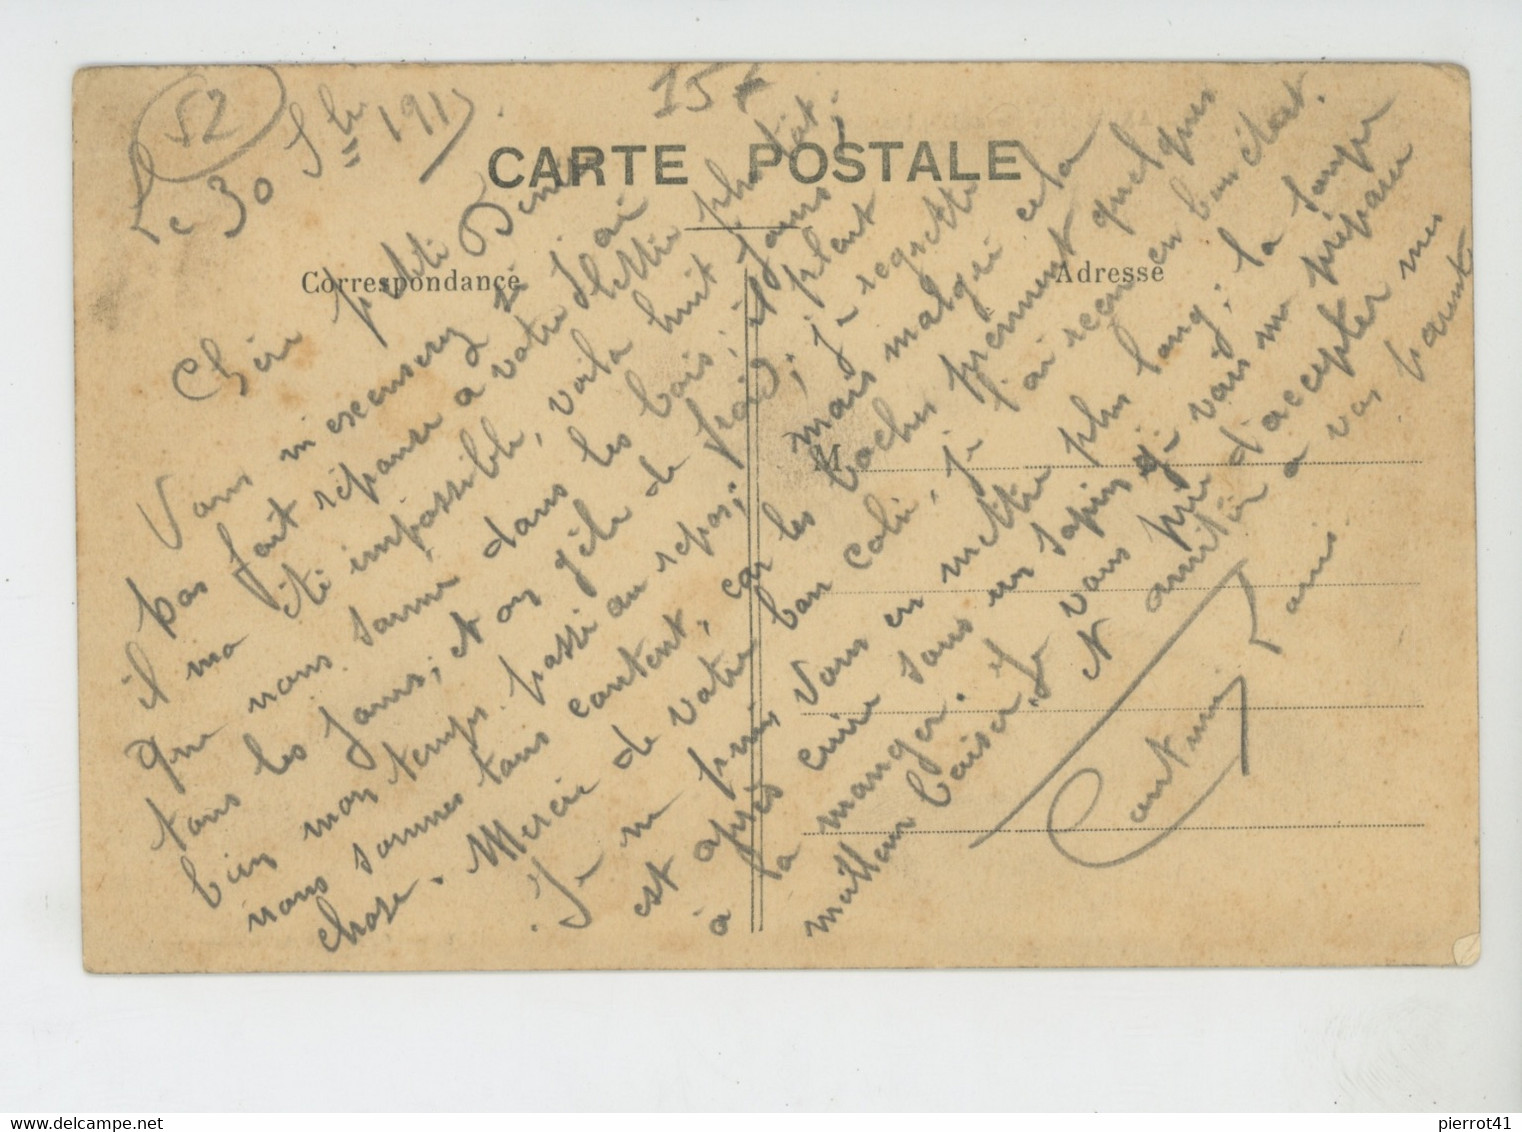 52
15 €
Le 30 Sbre 191
CARTE POSTALE
Correspondance
Adresse
M
Chère petite
Vous m'excuserez si j'ai
pas fait réponse a votre lettre plutôt;
il ma été impossible, voila huit jours
que nous somme dans les bois; il pleut
tous les jours, et on gèle de froid; je regrette
bien mon temps passé au repos; mais malgré cela
nous sommes tous content, car les boches prennent quelques
chose. Merci de votre bon colis, je l'ai reçu en bon état.
Je ne puis vous en mettre plus long; la soupe
est après cuire sous un sapin, je vais me préparer
à la manger. Je vous prie d'accepter mes
meilleurs baisers et amitiés a vos parents
pierrot41
www.delcampe.net